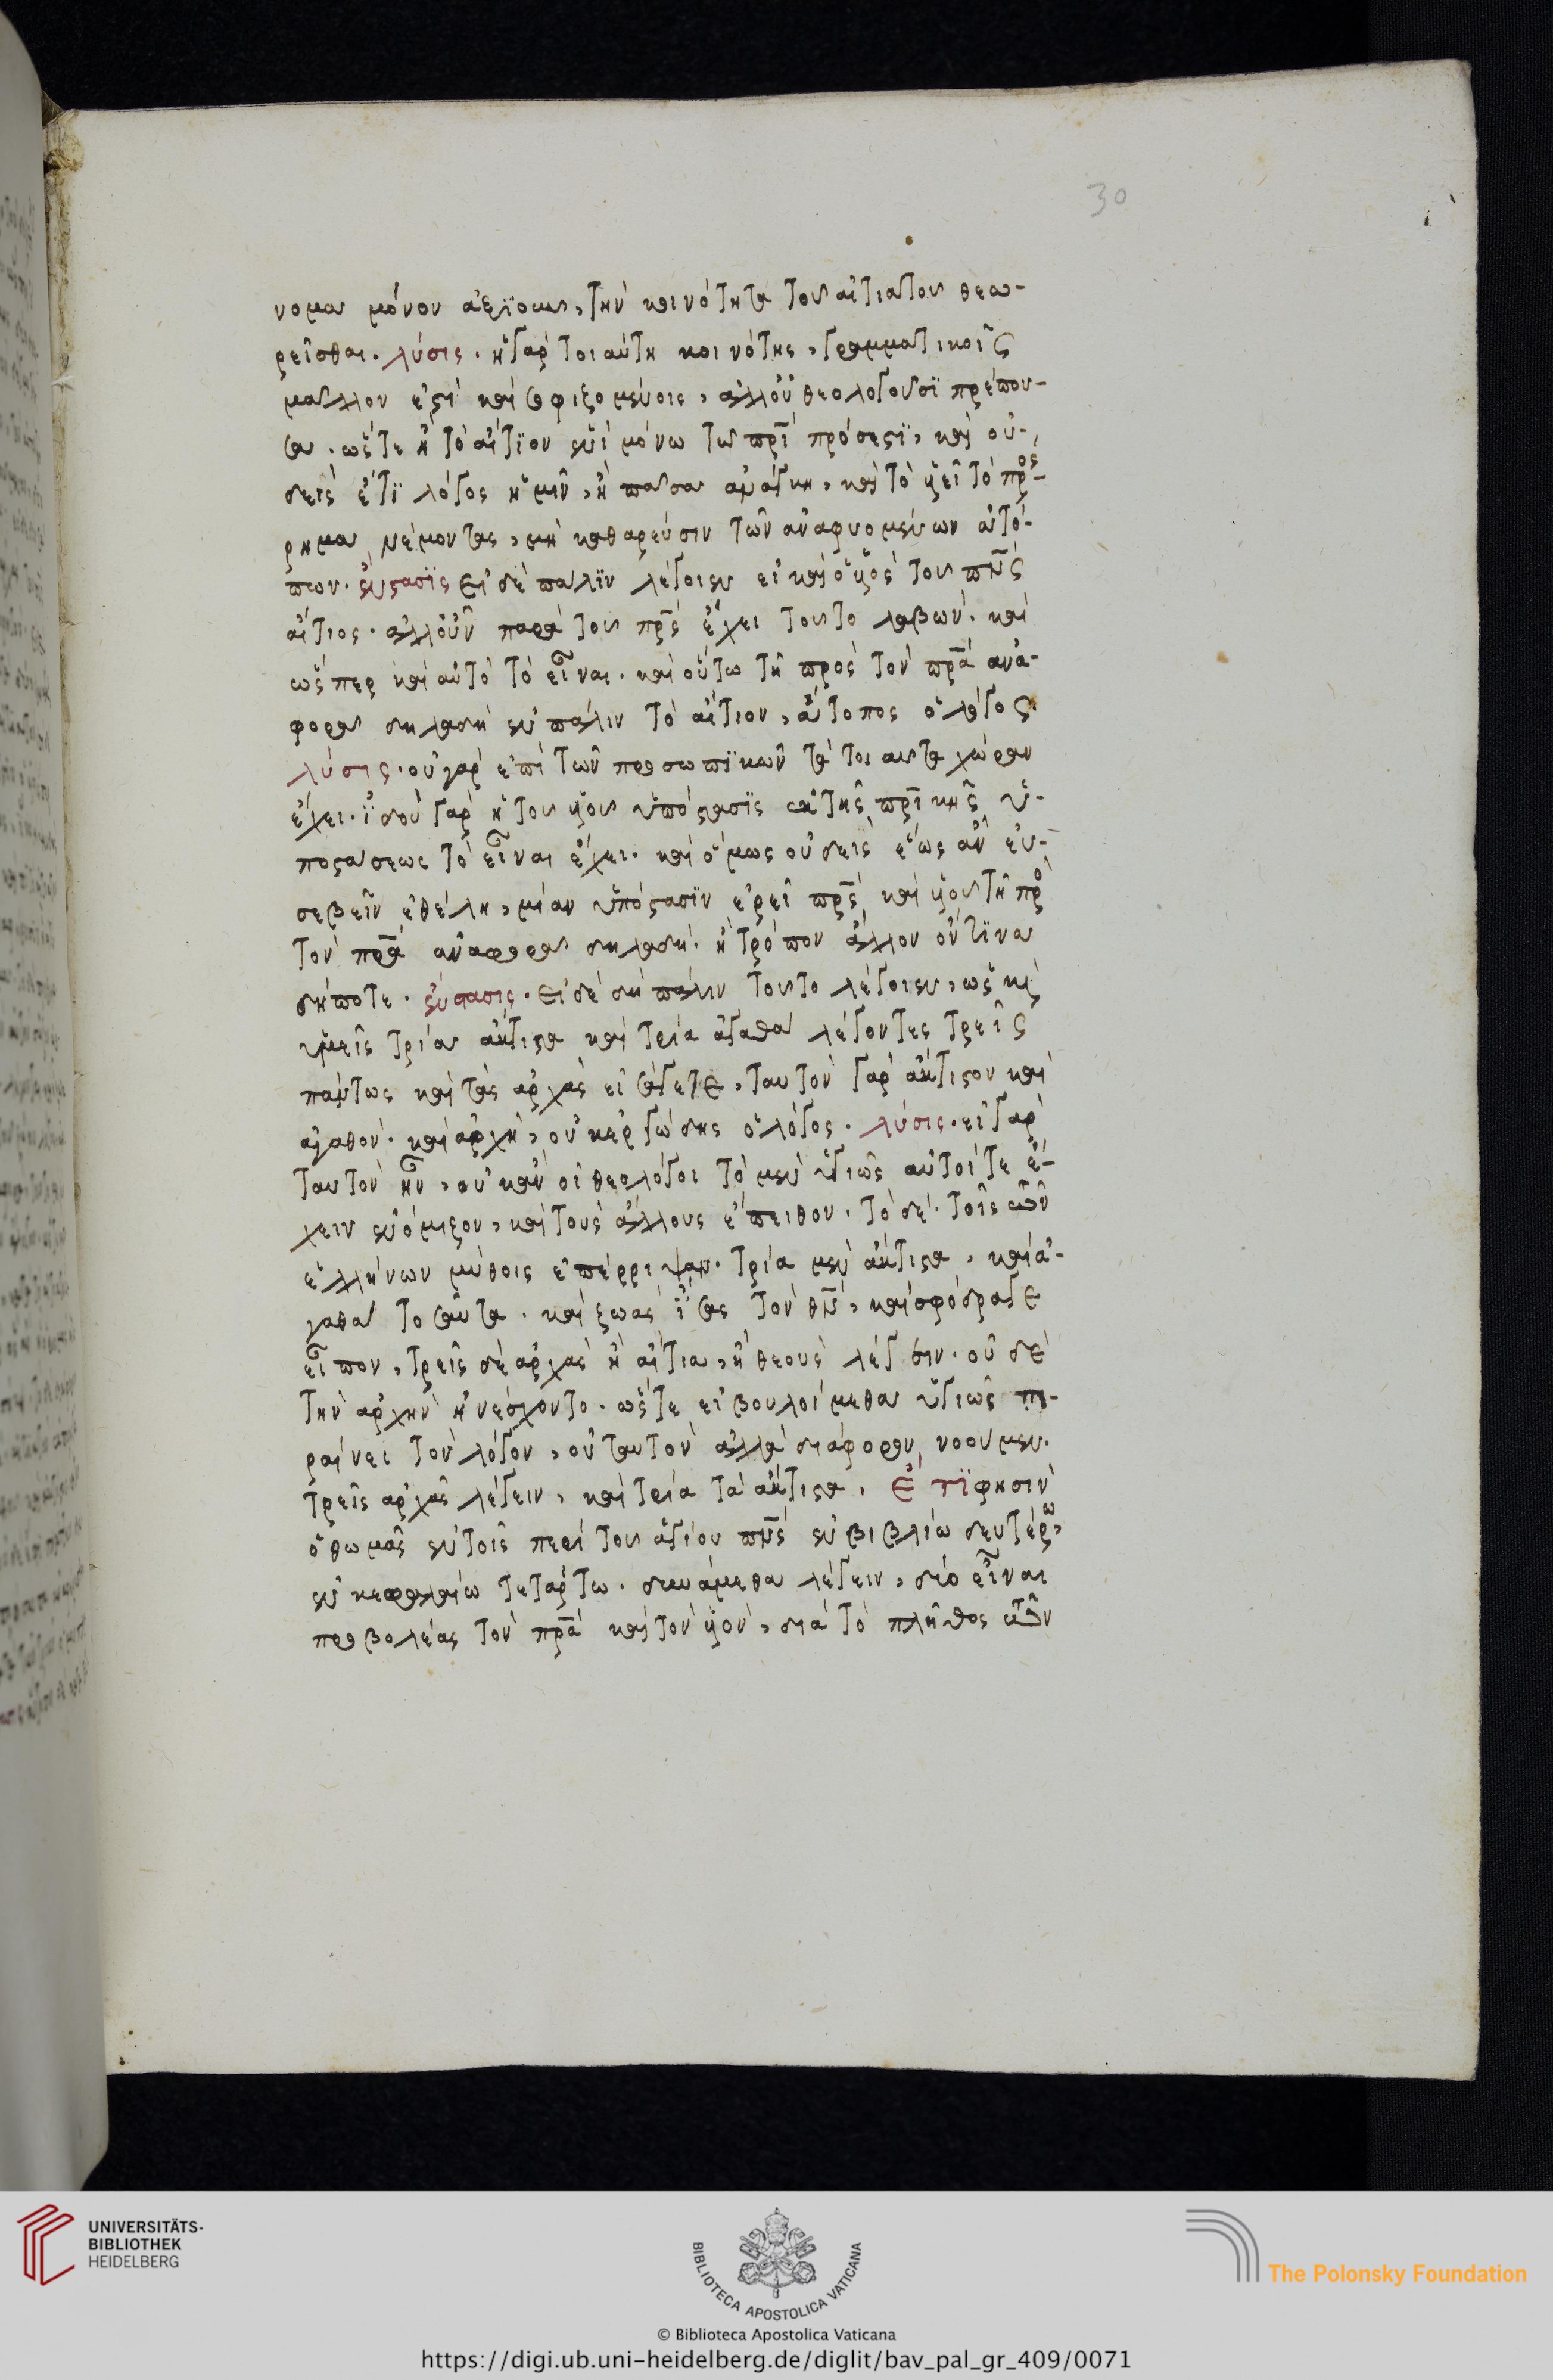 30
νομα μόνον ἀξιοῦν, τὴν κοινότητα τοῦ αἰτιατοῦ θεω-
ρεῖσθαι. λύσις. ἡ γὰρ τοιαύτη κοινότης, γραμματικοῖς
μᾶλλον ἐστὶ καὶ σοφιζομένοις, ἀλλ' οὐ θεολογοῦσϊ πρέπου-
σα. ὥστε ἢ τὸ αἴτϊον ἐνὶ μόνω τῶ πρὶ πρόσεστϊ, καὶ οὐ-
δεὶς ἔτϊ λόγος ἡμῖν, ἢ πᾶσα ἀνάγκη, καὶ τῶ υἱεῖ τὸ πρόσ-
ρημα νέμοντας, μὴ καθαρεύειν τῶν ἀναφυομένων ἀτό-
πων. ἔνστασϊς εἰ δὲ πάλϊν λέγοιεν εἰ καὶ ὁ υἱὸς τοῦ πνς
αἴτιος. ἀλλ' οὖν παρὰ τοῦ πρς ἔχει τοῦτο λαβών. καὶ
ὥσπερ καὶ αὐτὸ τὸ εἶναι. καὶ οὕτω τῆ πρὸς τὸν πρα ἀνα-
φορᾶ δηλαδὴ ἐν πάλιν τὸ αἴτιον, ἄτοπος ὁ λόγος
λύσις. οὐ γὰρ ἐπὶ τῶν προσωπϊκῶν τὰ τοιαῦτα χώραν
ἔχει. ἰδοὺ γὰρ ἡ τοῦ υἱοῦ ὑπόστασϊς ἐκ τῆς πρικῆς ὑ-
ποστάσεως τὸ εἶναι ἔχει. καὶ ὅμως οὐδεὶς ἕως ἂν εὐ-
σεβεῖν ἐθέλη, μίαν ὑπόστασϊν ἐρεῖ πρς καὶ υἱοῦ τῆ πρὸ
τὸν πρα ἀναφορᾶ δηλαδή. ἢ τρόπον ἄλλον ὅντϊνα
δήποτε. ἔνστασις. εἰ δὲ δὴ πάλιν τοῦτο λέγοιεν, ὡς καὶ
ὑμεῖς τρία ἄκτιστα καὶ τρία ἀγαθὰ λέγοντες τρεῖς
πάντως καὶ τὰς ἀρχὰς εἰσάγετε, ταυτὸν γὰρ ἄκτιστον καὶ
ἀγαθόν. καὶ ἀρχὴ, οὐ κερδώδης ὁ λόγος. λύσις. εἰ γὰρ
ταυτὸν ἦν, οὐκ ἂν οἱ θεολόγοι τὸ μὲν ὑγιῶς αὐτοί τε ἔ-
χειν ἐνόμιζον, καὶ τοὺς ἄλλους ἔπειθον. τὸ δὲ. τοῖς τῶν
ἑλλήνων μύθοις ἐπέρριψαν. τρία μὲν ἄκτιστα, καὶ ἀ-
γαθὰ τοσαῦτα. καὶ ζωὰς ἴσας τὸν θν, καὶ σφόδρα γε
εἶπον, τρεῖς δὲ ἀρχὰς ἢ αἴτια, ἢ θεοὺς λέγειν. οὐδὲ
τὴν ἀρχὴν ἠνέσχοντο. ὥστε εἰ βουλοίμεθα ὑγιῶς πε-
ραίνει τὸν λόγον, οὐ ταυτὸν ἀλλὰ διάφορον νοοῦμεν.
τρεῖς ἀρχὰς λέγειν, καὶ τρία τὰ ἄκτιστα. ἔτϊ φησὶν
ὁ θωμᾶς ἐν τοῖς περὶ τοῦ ἁγίου πνς ἐν βιβλίω δευτέρω,
ἐν κεφαλαίω τετάρτω. δυνάμεθα λέγειν, δύο εἶναι
προβολέας τὸν πρα καὶ τὸν υἱὸν, διὰ τὸ πλῆθος τῶν
UNIVERSITÄTS-
BIBLIOTHEK
HEIDELBERG
BIBLIOTECA APOSTOLICA VATICANA
The Polonsky Foundation
© Biblioteca Apostolica Vaticana
https://digi.ub.uni-heidelberg.de/diglit/bav_pal_gr_409/0071